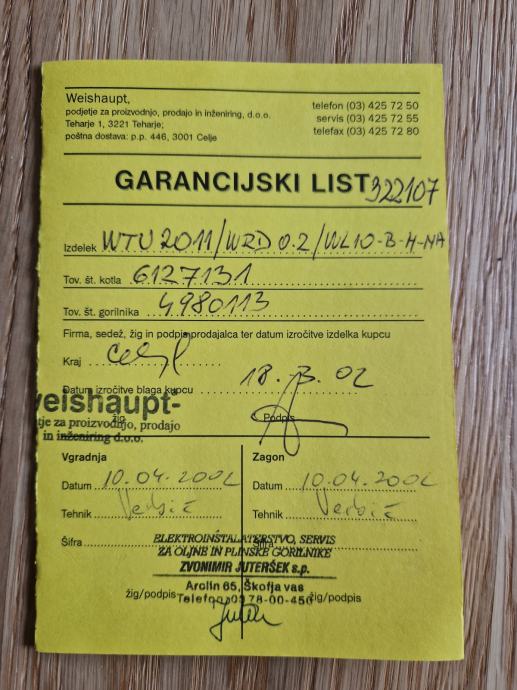 Weishaupt,
podjetje za proizvodnjo, prodajo in inženiring, d.o.o.
Teharje 1, 3221 Teharje;
poštna dostava: p.p. 446, 3001 Celje
telefon (03) 425 72 50
servis (03) 425 72 55
telefax (03) 425 72 80
GARANCIJSKI LIST 322107
Izdelek WTU 2011/WRD 0.2/WL10-B-H-NA
Tov. št. kotla 6127131
Tov. št. gorilnika 4980113
Firma, sedež, žig in podpis prodajalca ter datum izročitve izdelka kupcu
Kraj
Datum izročitve blaga kupcu 18. 3. 02
žig
Podpis
weishaupt-
tje za proizvodnjo, prodajo
in inženiring d.o.o.
Vgradnja
Datum 10.04.2002
Tehnik
Šifra
Zagon
Datum 10.04.2002
Tehnik
Šifra
ELEKTROINŠTALATERSTVO, SERVIS
ZA OLJNE IN PLINSKE GORILNIKE
ZVONIMIR JUTERŠEK s.p.
Arclin 65, Škofja vas
žig/podpis
žig/podpis